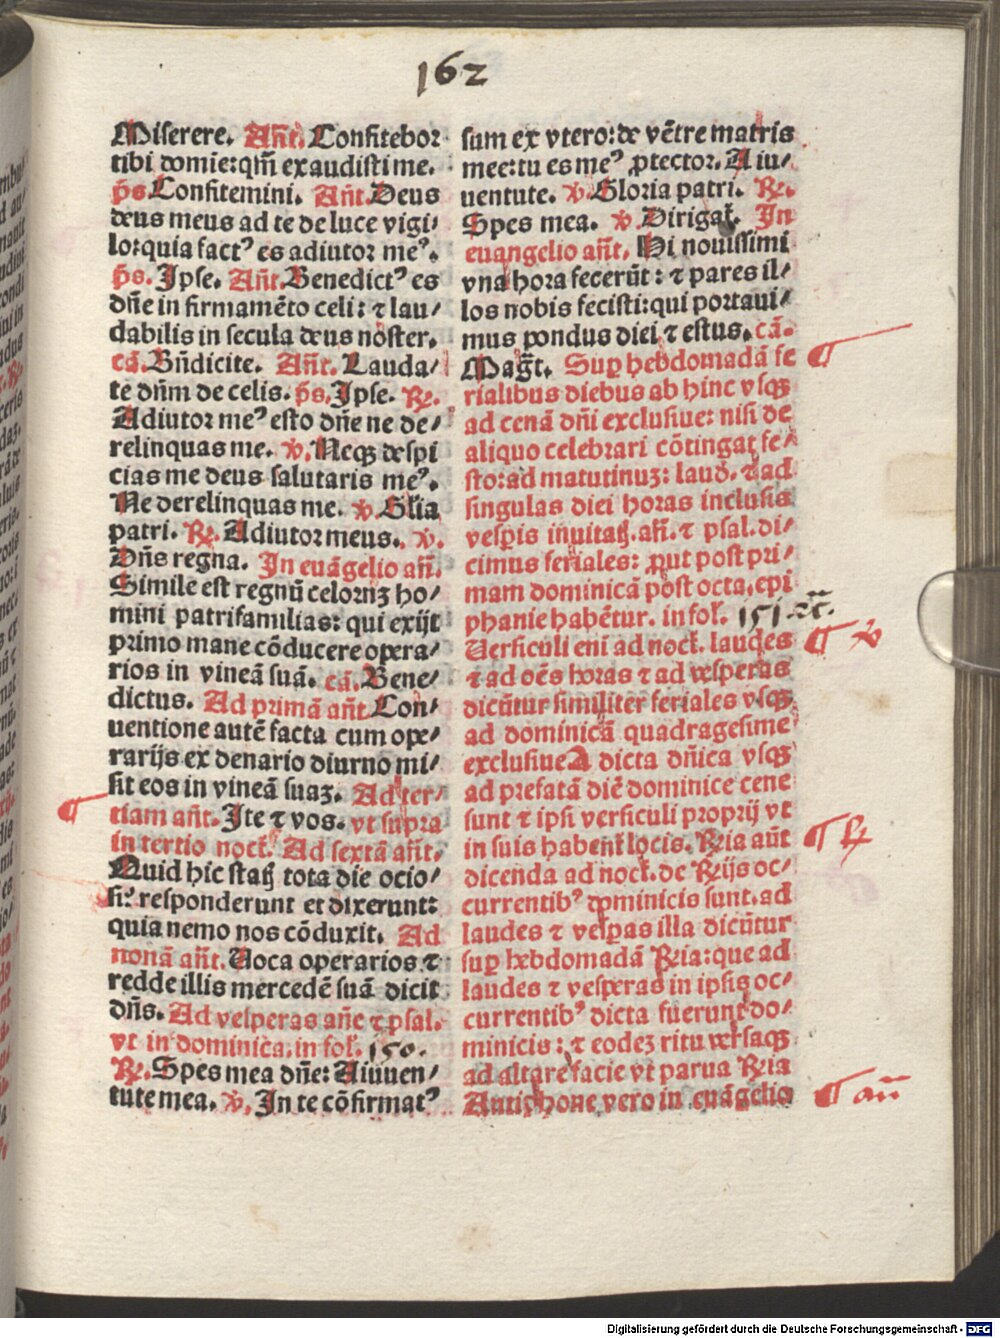 162
Miserere. Añt. Confitebor
tibi domie: qm̄ exaudisti me.
p̄s Confitemini. Añt. Deus
deus meus ad te de luce vigi⸗
lo: quia factꝰ es adiutor meꝰ.
p̄s. Ipse. Añt. Benedictꝰ es
dñe in firmamēto celi: ⁊ lau⸗
dabilis in secula deus noster.
cā. Bñdicite. Añt. Lauda⸗
te dn̄m de celis. p̄s. Ipse. ℞.
Adiutor meꝰ esto dñe ne de⸗
relinquas me. ℣. Neqꝫ despi
cias me deus salutaris meꝰ.
Ne derelinquas me. ℣. Gl̄ia
patri. ℞. Adiutor meus. ℣.
Dñs regna. In euāgelio añ.
Simile est regnū celoruꝫ ho⸗
mini patrifamilias: qui exijt
primo mane cōducere opera⸗
rios in vineā suā. cā. Bene⸗
dictus. Ad primā añt Con⸗
uentione autē facta cum ope⸗
rarijs ex denario diurno mi⸗
sit eos in vineā suaꝫ. Ad ter⸗
tiam añt. Ite ⁊ vos. vt supra
in tertio noct̄. Ad sextā añt.
Quid hic statꝭ tota die ocio⸗
si: responderunt et dixerunt:
quia nemo nos cōduxit. Ad
nonā añt. Uoca operarios ⁊
redde illis mercedē suā dicit
dñs. Ad vesperas añe ⁊ psal.
vt in dominica. in fol. 150.
℞. Spes mea dñe: A iuuen⸗
tute mea. ℣. In te cōfirmatꝰ
sum ex vtero: de vētre matris
mee: tu es meꝰ ꝓtector. A iu⸗
uentute. ℣. Gloria patri. ℞.
Spes mea. ℣. Dirigat̄. In
euangelio añt. Hi nouissimi
vna hora fecerūt: ⁊ pares il⸗
los nobis fecisti: qui portaui⸗
mus pondus diei ⁊ estus. cā.
Magt̄. Suꝑ hebdomadā fe
rialibus diebus ab hinc vsqꝫ
ad cenā dñi exclusiue: nisi de
aliquo celebrari cōtingat fe⸗
sto: ad matutinuꝫ: laud. ⁊ ad
singulas diei horas inclusis
vesꝑis inuitatꝭ. añ. ⁊ psal. di⸗
cimus feriales: ꝓut post pri⸗
mam dominicā post octa. epi
phanie habētur. in fol. 151 ⁊c̄.
Uersiculi eni ad noct̄. laudes
⁊ ad oēs horas ⁊ ad vesperas
dicūtur similiter feriales vsqꝫ
ad dominicā quadragesime
exclusiue A dicta dñica vsqꝫ
ad prefatā diē dominice cene
sunt ⁊ ipsi versiculi proprij vt
in suis habent̄ locis. ℞ia aūt
dicenda ad noct̄. de ℞ijs oc⸗
currentibꝰ dominicis sunt. ad
laudes ⁊ vesꝑas illa dicūtur
suꝑ hebdomadā ℞ia: que ad
laudes ⁊ vesperas in ipsis oc⸗
currentibꝰ dicta fuerunt do⸗
minicis: ⁊ eodeꝫ ritu versaqꝫ
ad altare facie vt parua ℞ia
Antiphone vero in euāgelio
¶
¶
¶ ℣
¶ ℞
¶ añ
Digitalisierung gefördert durch die Deutsche Forschungsgemeinschaft - DFG